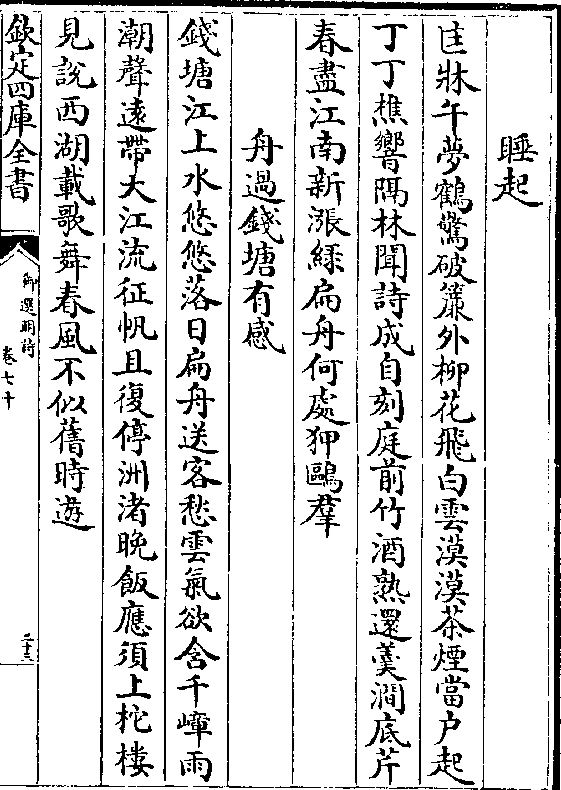 睡起
匡牀午夢鶴驚破簾外柳花飛白雲漠漠茶煙當户起
丁丁樵響隔林聞詩成自刻庭前竹酒熟還羹澗底芹
春盡江南新漲緑扁舟何處狎鷗羣
舟過錢塘有感
錢塘江上水悠悠落日扁舟送客愁雲氣欲含千嶂雨
潮聲遠帶大江流征帆且復停洲渚晚飯應須上柁樓
見說西湖載歌舞春風不似舊時遊
欽定四庫全書
御選明詩
卷七十
二十三